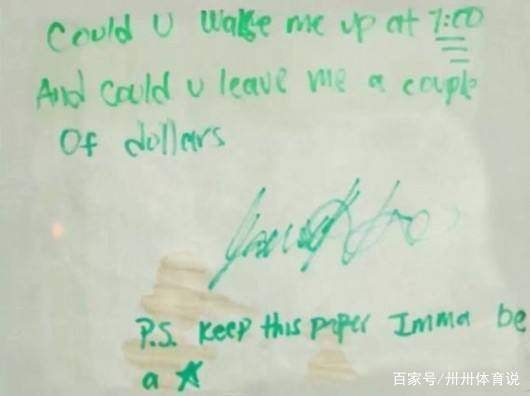 Could U wake me up at 7:00
And could u leave me a couple
Of dollars
P.S. Keep this paper Imma be
a ★
百家号/卅卅体育说